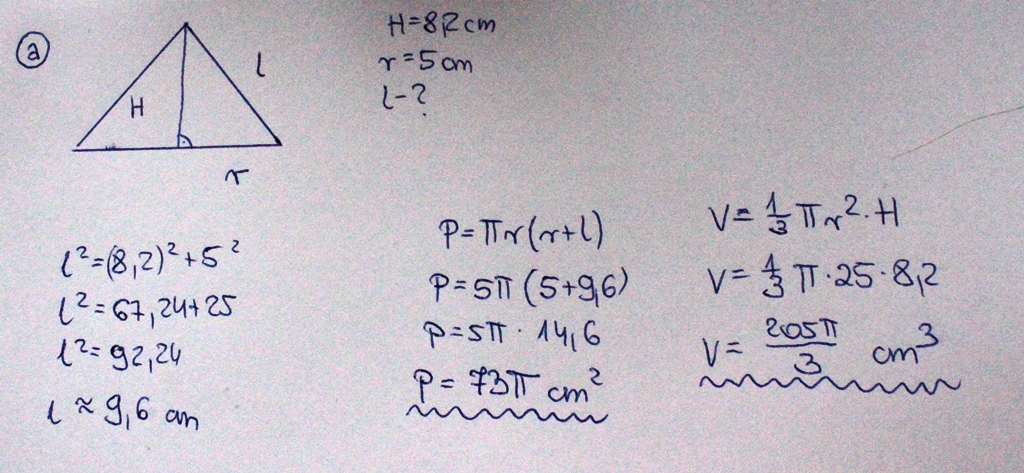 a
H
l
r
H=8,2cm
r=5cm
l-?
l²=(8,2)²+5²
l²=67,24+25
l²=92,24
l≈9,6 cm
P=πr(r+l)
P=5π(5+9,6)
P=5π·14,6
P=73π cm²
V=1/3πr²·H
V=1/3π·25·8,2
V=205π/3 cm³